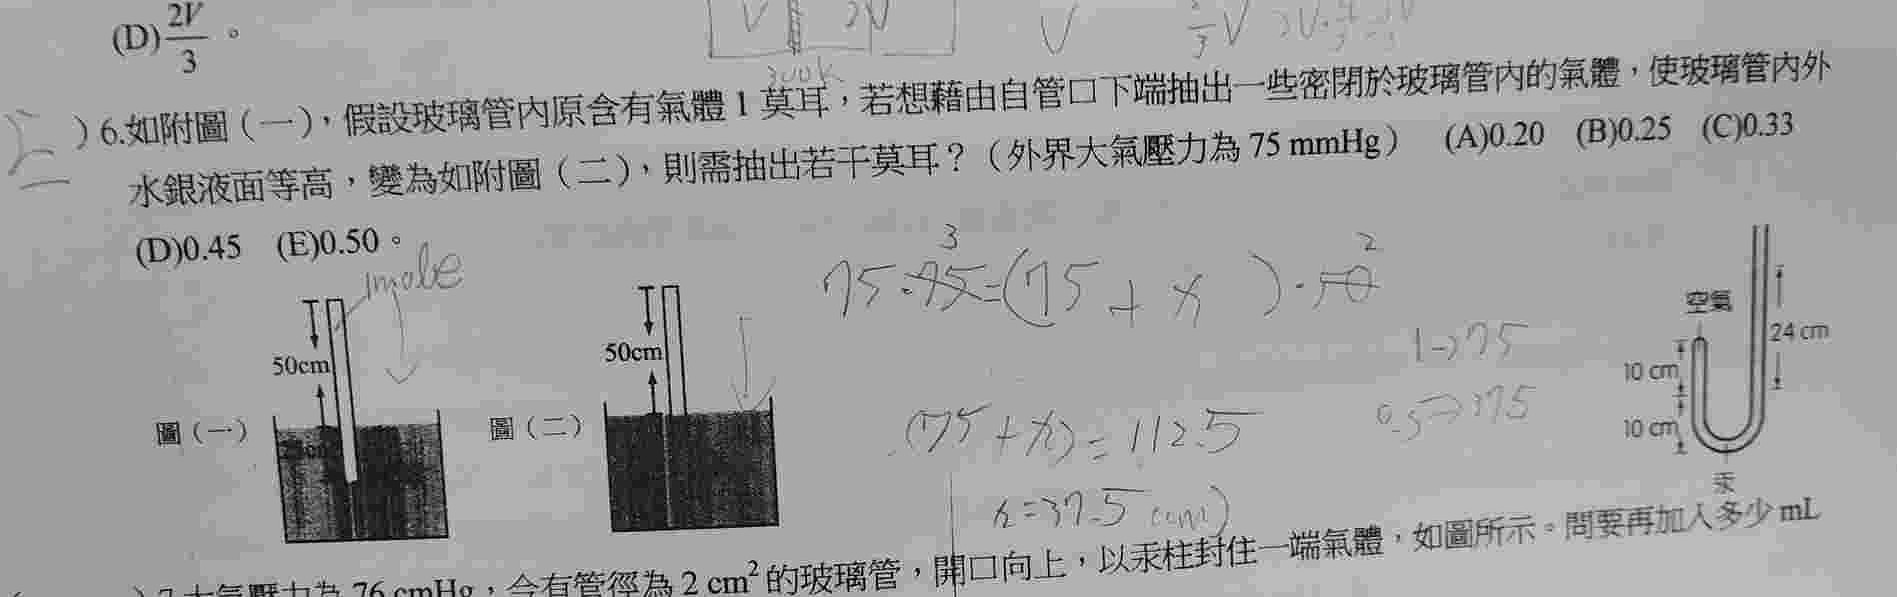 (D)2V/3。
V 2V
V
300K
)6.如附圖(一)，假設玻璃管內原含有氣體 1 莫耳，若想藉由自管口下端抽出一些密閉於玻璃管內的氣體，使玻璃管內外
水銀液面等高，變為如附圖(二)，則需抽出若干莫耳？(外界大氣壓力為 75 mmHg) (A)0.20 (B)0.25 (C)0.33
(D)0.45 (E)0.50。
1mole
50cm
圖(一)
50cm
圖(二)
3 2
75·75=(75 + x )·50
(75+x)=112.5
x=37.5(cm)
1→75
0.5→37.5
空氣
24 cm
10 cm
10 cm
汞
76 cmHg，今有管徑為 2 cm²的玻璃管，開口向上，以汞柱封住一端氣體，如圖所示。問要再加入多少 mL